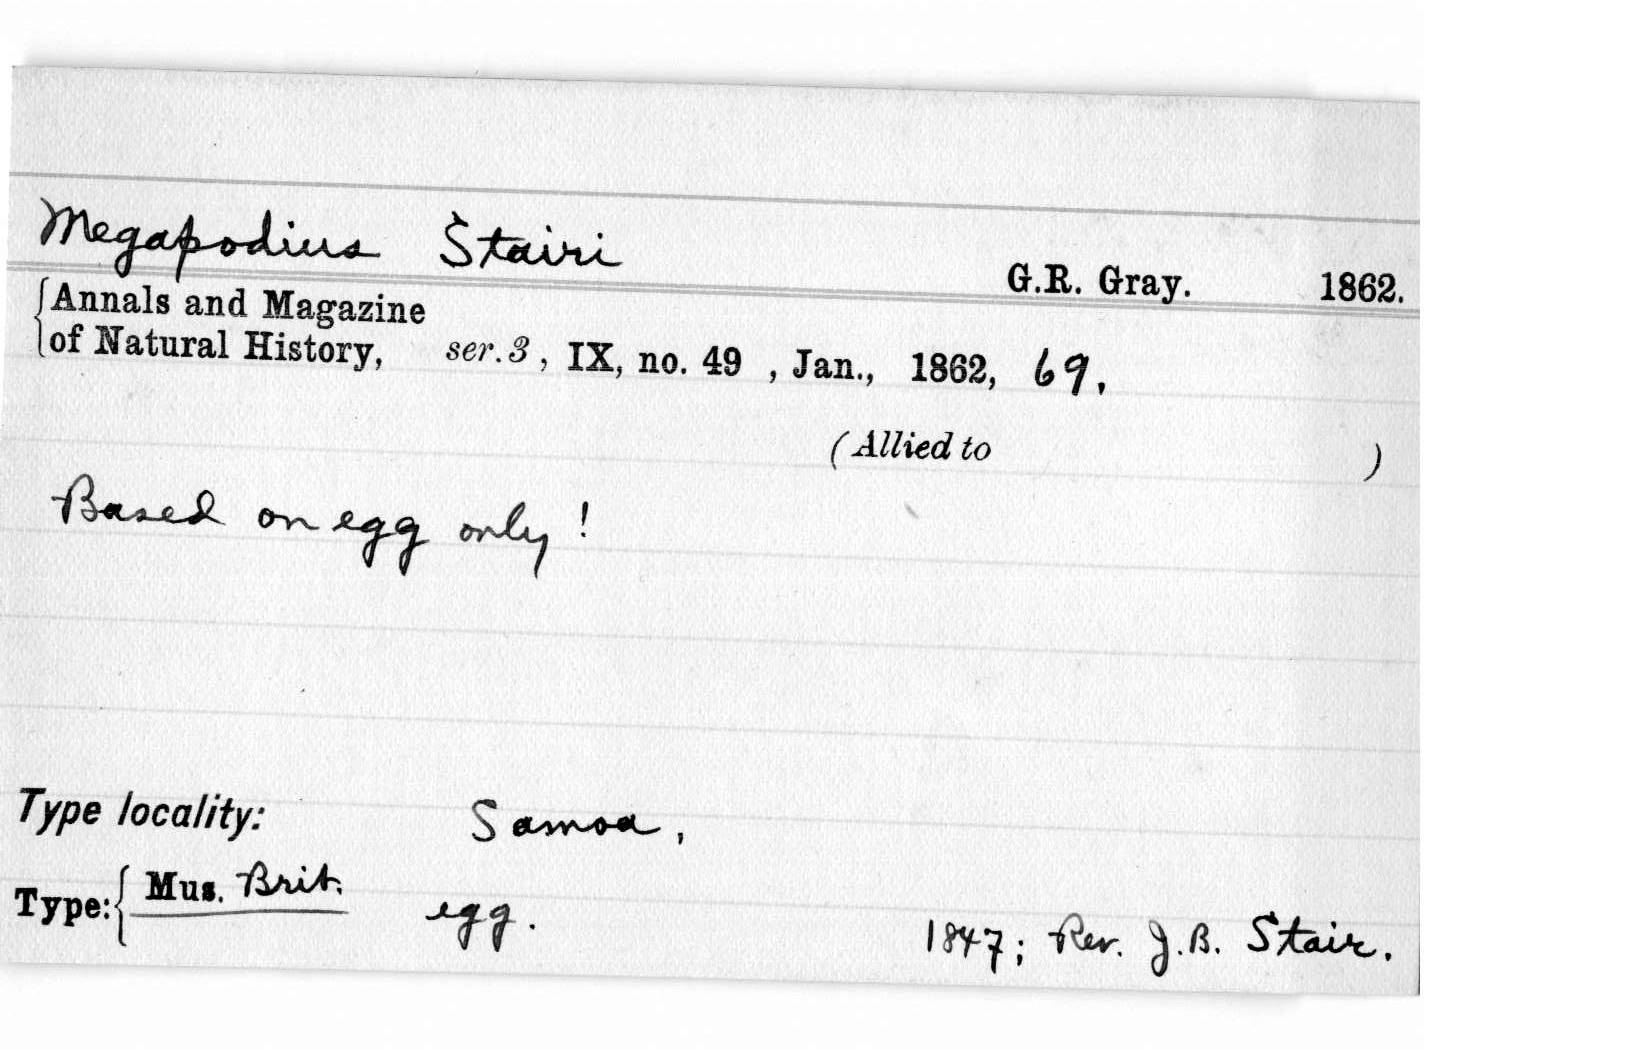 Megapodius Stairi G.R. Gray. 1862.
Annals and Magazine
of Natural History, ser. 3, IX, no. 49, Jan., 1862, 69.
(Allied to )
Based on egg only!
Type locality: Samoa,
Type: Mus. Brit. egg. 1847; Rev. J.B. Stair.